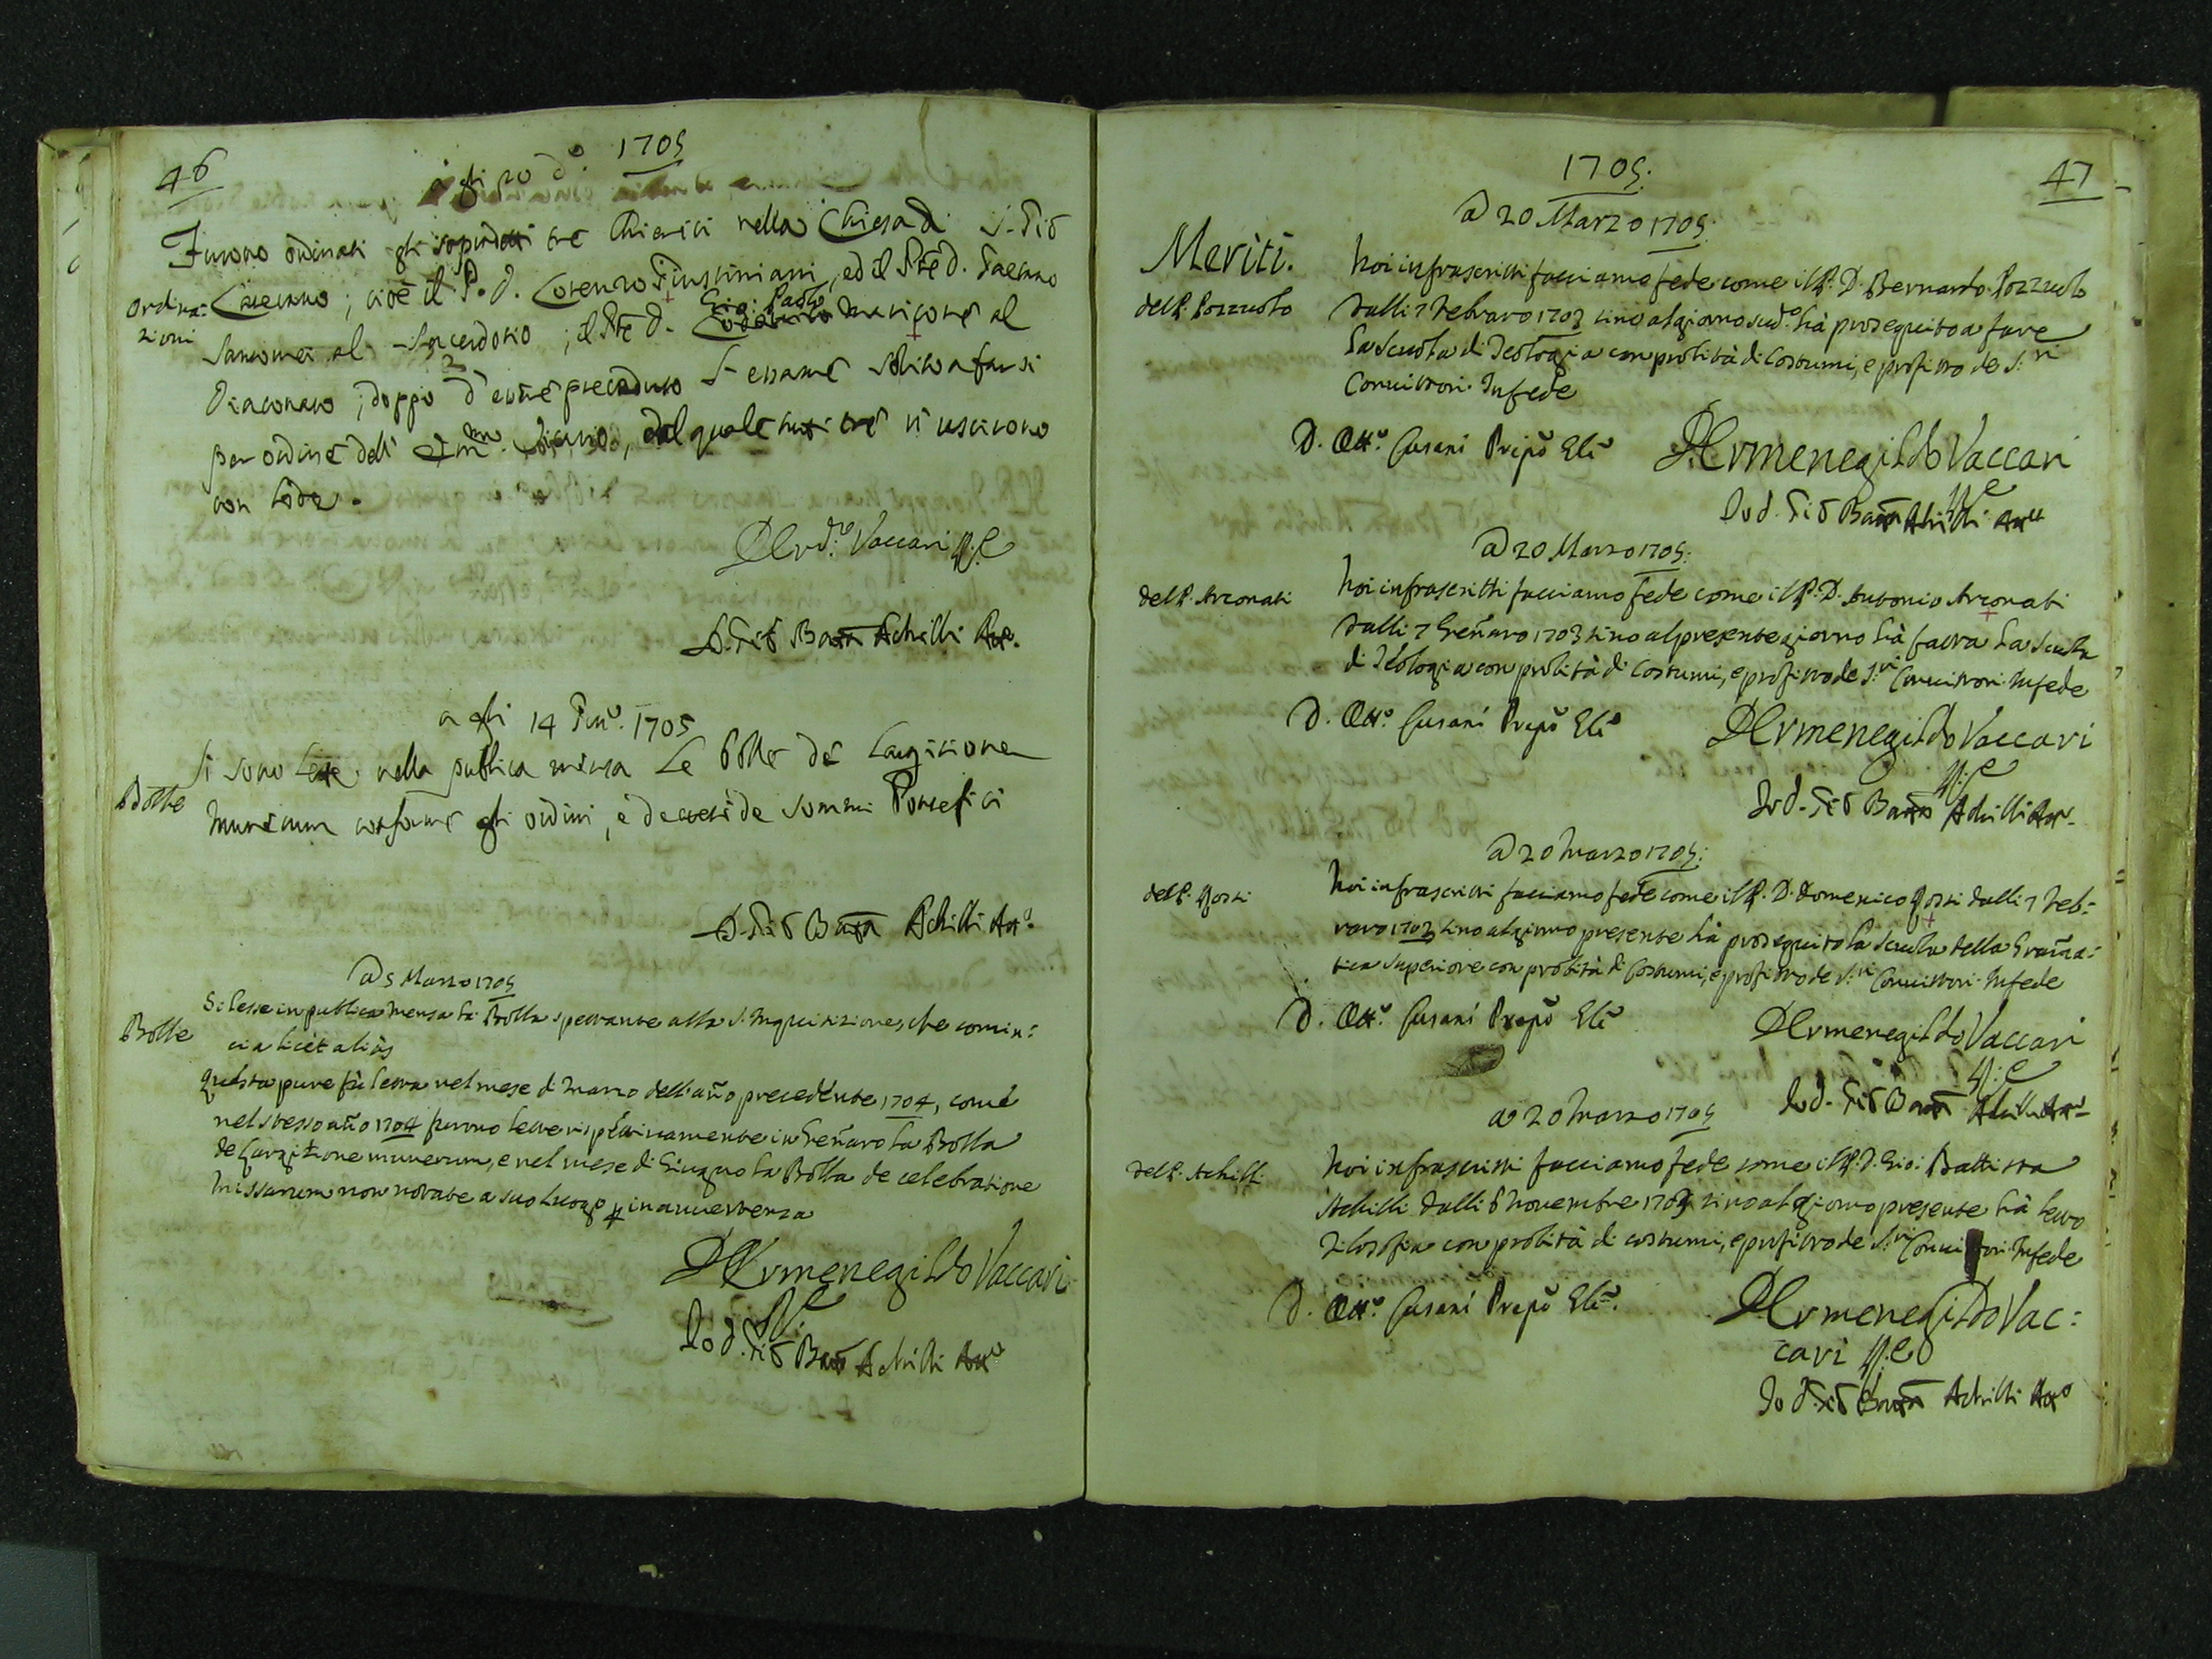 46
1705
a gli 20 d.º
Furono ordinati gli sopradetti tre Chierici nella Chiesa di S. Gio
Ordina:
zioni
Laterano; cioè il P. D. Lorenzo Giustiniani, ed il Pre D. Gaetano
Sansone al Sacerdotio; il Pre D. Gio: Paolo al
Diaconato; doppo d'essere preceduto l'essame solito a farsi
per ordine dell' Em.mo Vicario, dal quale tutti tre si uscirono
con lode.
D Erm.do Vaccari
D. Gio Batta Achilli Att.
a gli 14 Gen.º 1705
Bolle
Si sono lette nella publica mensa le bolle de Largitione
Munerum conforme gli ordini, e decreti de Sommi Pontefici
D. Gio Batta Achilli Att.º
A 5 Marzo 1705
Bolle
Si lesse in publica mensa la Bolla spettante alla S. Inquisizione, che comin:
cia licet aliàs
Questa pure fù letta nel mese di Marzo dell'año precedente 1704, come
nel stesso año 1704 furono lette rispettivamente in Geñaro la Bolla
de Largitione munerum, e nel mese di Giugno la Bolla de celebratione
Missarum non notate a suo luogo p inavvertenza
D Ermenegildo Vaccari
Io D. Gio Batta Achilli Att.º
1705.
47
A 20 Marzo 1705.
Meriti.
del P. Pozzuolo
Noi infrascritti facciamo fede come il P. D. Bernardo Pozzuolo
dalli 7 Febraro 1703 sino al giorno sud.º hà proseguito a fare
la Scuola di Teologia con probità di Costumi, e profitto de S.ri
Convittori. In fede
D. Ott.º Cusani Prepo
D Ermenegildo Vaccari
Io D. Gio Batta Achilli Att.º
A 20 Marzo 1705.
del P. Arconati
Noi infrascritti facciamo fede come il P. D. Antonio Arconati
dalli 7 Geñaro 1703 sino al presente giorno hà fatta la Scuola
di Teologia con probità di Costumi, e profitto de S.ri Convittori. In fede
D. Ott.º Cusani Prepo
D Ermenegildo Vaccari
Io D. Gio Batta Achilli Att.
A 20 Marzo 1705.
del P. Gotti
Noi infrascritti facciamo fede come il P. D. Domenico Gotti dalli 7 Feb:
raro 1703 sino al giorno presente hà proseguito la Scuola della Grañma:
tica Superiore con probità di Costumi, e profitto de S.ri Convittori. In fede
D. Ott.º Cusani Prepo
D Ermenegildo Vaccari
Io D. Gio Batta Achilli Att.º
A 20 Marzo 1705
del P. Achilli
Noi infrascritti facciamo fede come il P. D. Gio: Battista
Achilli dalli 6 Novembre 1703 sino al giorno presente hà letto
Filosofia con probità di costumi, e profitto de S.ri Convittori. In fede
D. Ott.º Cusani Prepo
D Ermenegildo Vac:
cari
Io D. Gio Batta Achilli Att.º